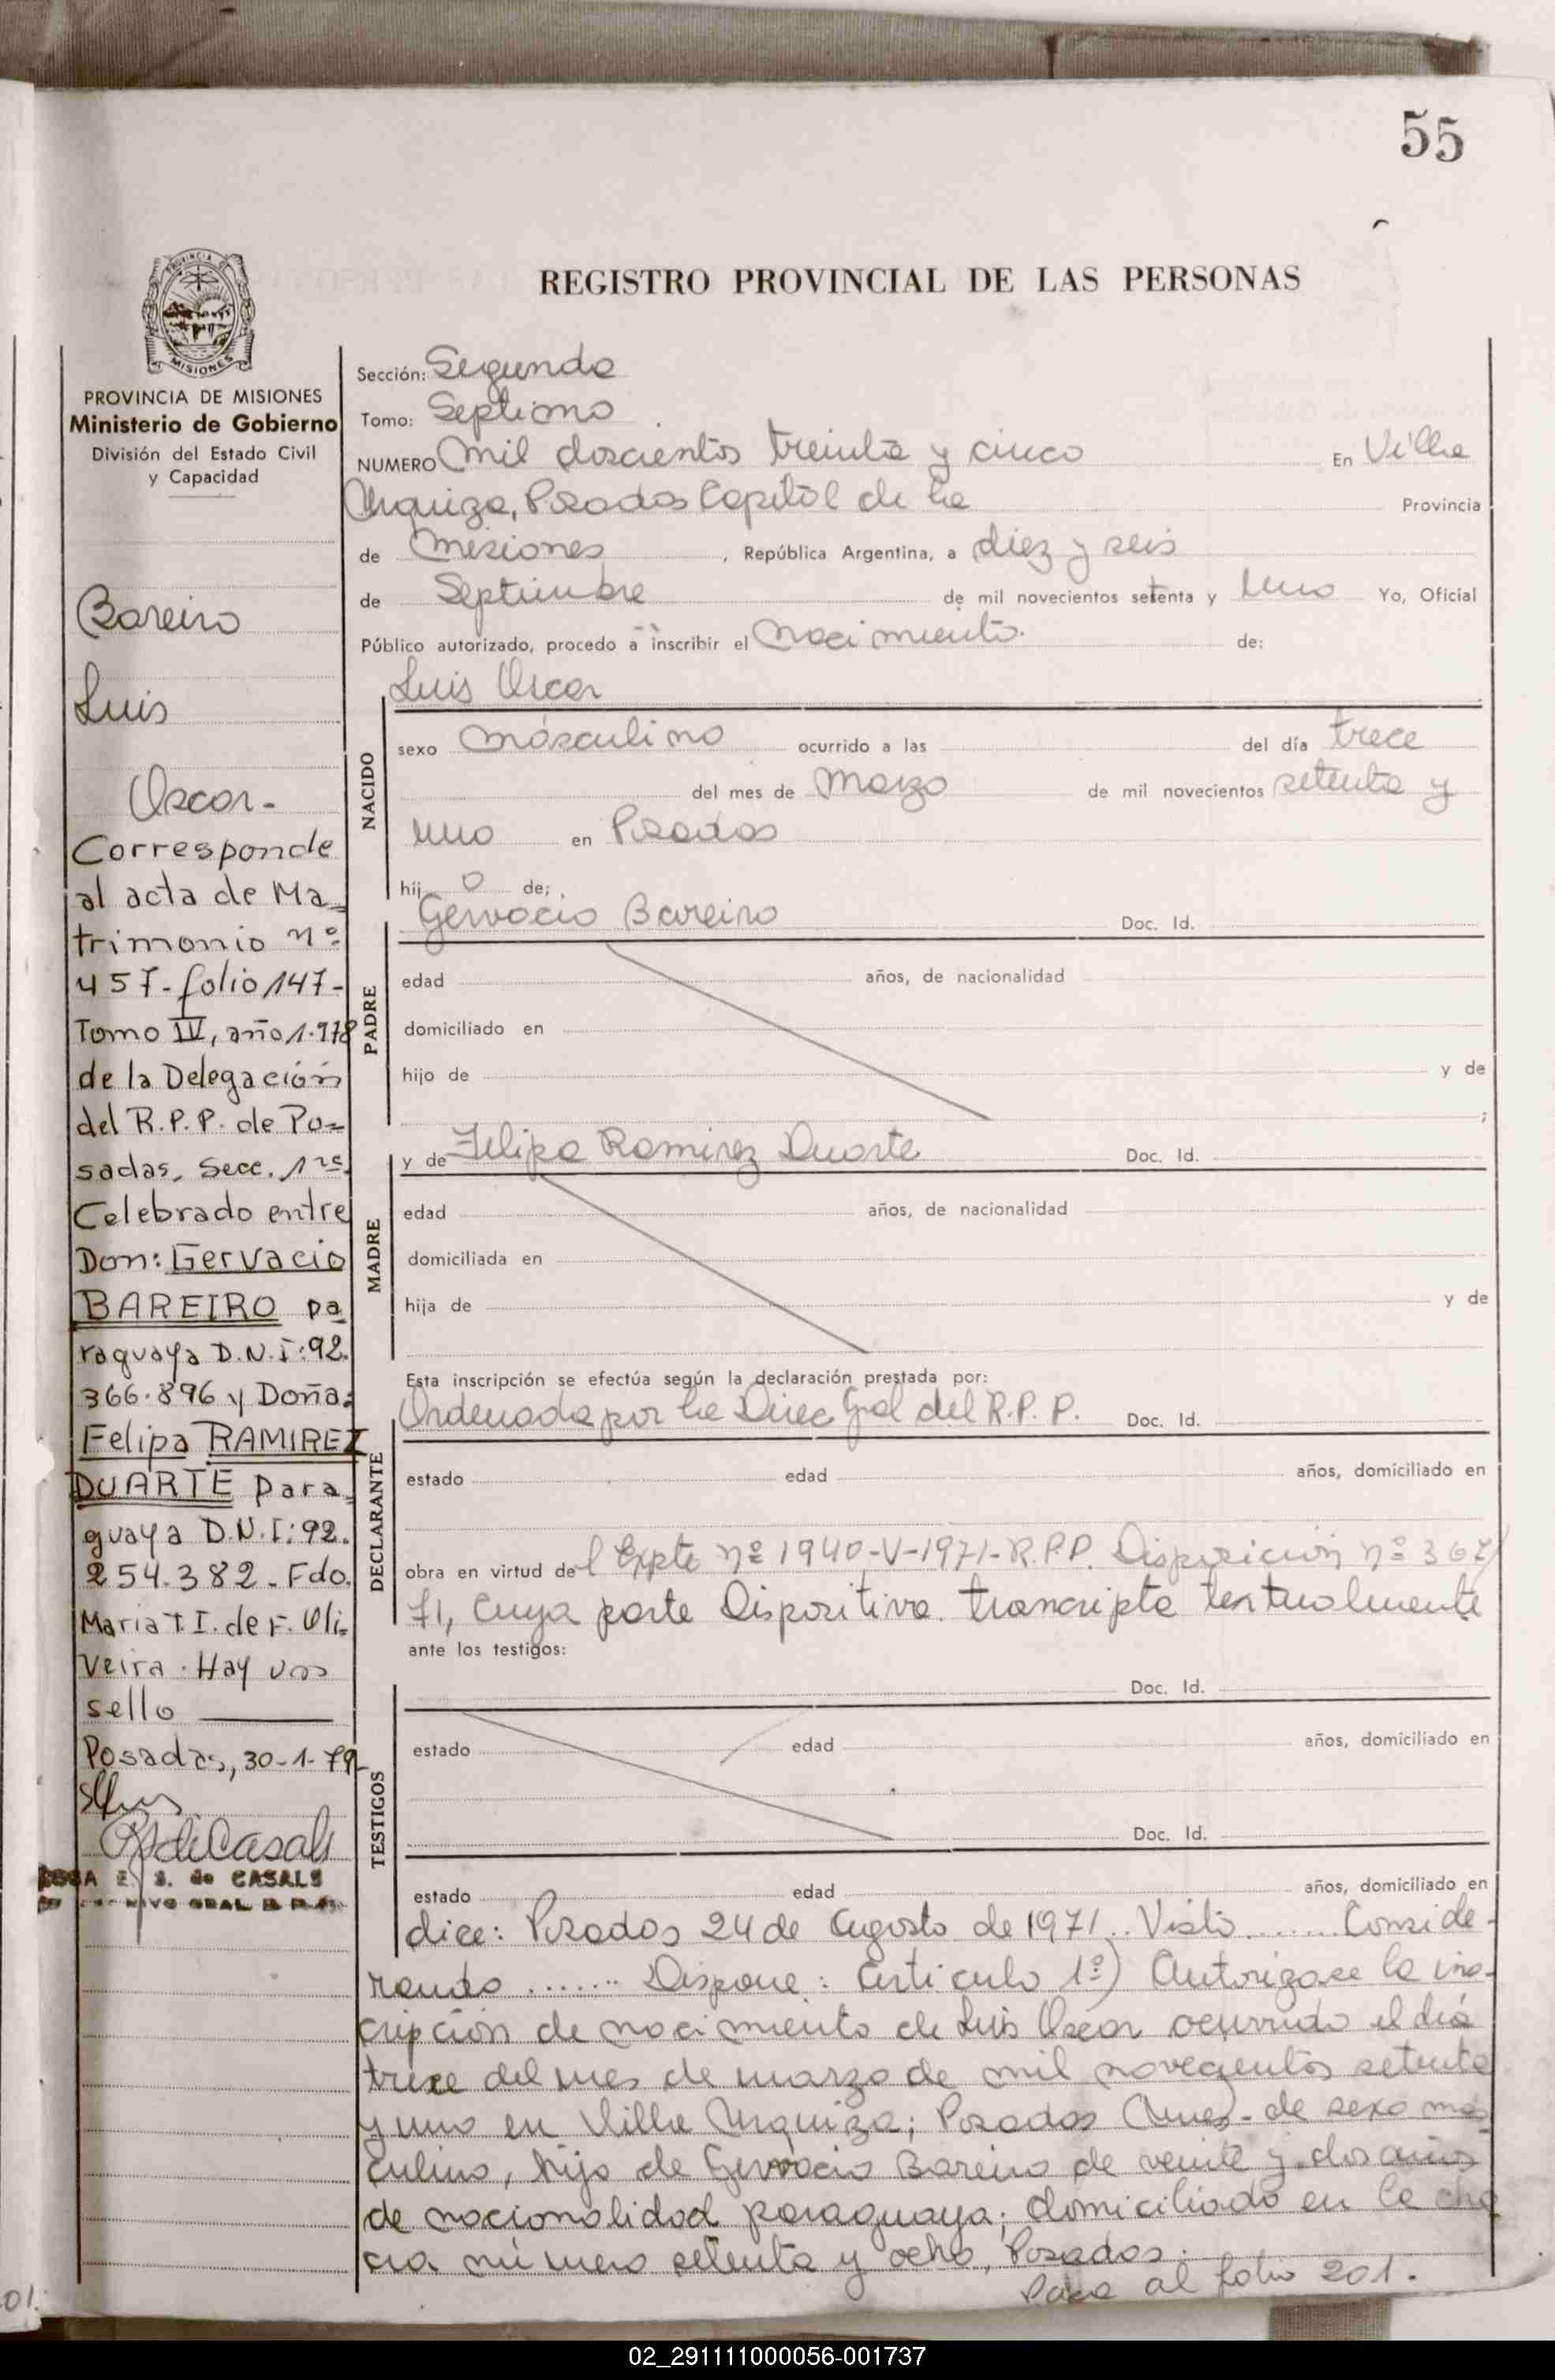 55
REGISTRO PROVINCIAL DE LAS PERSONAS
MISIONES
PROVINCIA DE MISIONES
Ministerio de Gobierno
División del Estado Civil
y Capacidad
Bareiro
Luis
Oscar-
Corresponde
al acta de Ma=
trimonio nº
457-folio 147-
Tomo IV, año 1.978
de la Delegación
del R.P.P. de Po=
sadas, Secc. 1ra.
Celebrado entre
Don: Gervacio
BAREIRO pa
raguaya D.N.I:92.
366.896 y Doña:
Felipa RAMIREZ
DUARTE para
guaya D.N.I:92.
254.382-Fdo.
Maria T.I. de F. Oli=
veira. Hay un
sello
Posadas, 30-1-79-
E. S. de CASALS
Sección: Segunda
Tomo: Septimo
NUMERO mil doscientos treinta y cinco En Villa
Urquiza, Posadas Capital de la Provincia
de Misiones, República Argentina, a diez y seis
de Septiembre de mil novecientos setenta y uno Yo, Oficial
Público autorizado, procedo a inscribir el nacimiento. de:
Luis Oscar
NACIDO
sexo másculino ocurrido a las del día trece
del mes de marzo de mil novecientos setenta y
uno en Posadas
hij o de;
Gervacio Bareiro Doc. Id.
PADRE
edad años, de nacionalidad
domiciliado en
hijo de y de
;
y de Felipa Ramirez Duarte Doc. Id.
MADRE
edad años, de nacionalidad
domiciliada en
hija de y de
Esta inscripción se efectúa según la declaración prestada por:
Ordenada por la Direc Gral del R.P.P. Doc. Id.
DECLARANTE
estado edad años, domiciliado en
obra en virtud del Expte nº 1940-V-1971-R.P.P. Disposición nº 367/
71, cuya parte Dispositiva transcripta textualmente
ante los testigos:
Doc. Id.
TESTIGOS
estado edad años, domiciliado en
Doc. Id.
estado edad años, domiciliado en
dice: Posadas 24 de Agosto de 1971.. Visto ....... Conside-
rando ....... Dispone: Articulo 1º) Autorizase la ins-
cripción de nacimiento de Luis Oscar ocurrido el día
trece del mes de marzo de mil novecientos setenta
y uno en Villa Urquiza; Posadas de sexo mas
culino, hijo de Gervacio Bareiro de veinte y dos años
de nacionalidad paraguaya; domiciliado en la cha
cra número setenta y ocho, Posadas.
Pasa al folio 201.
01.
02_291111000056-001737